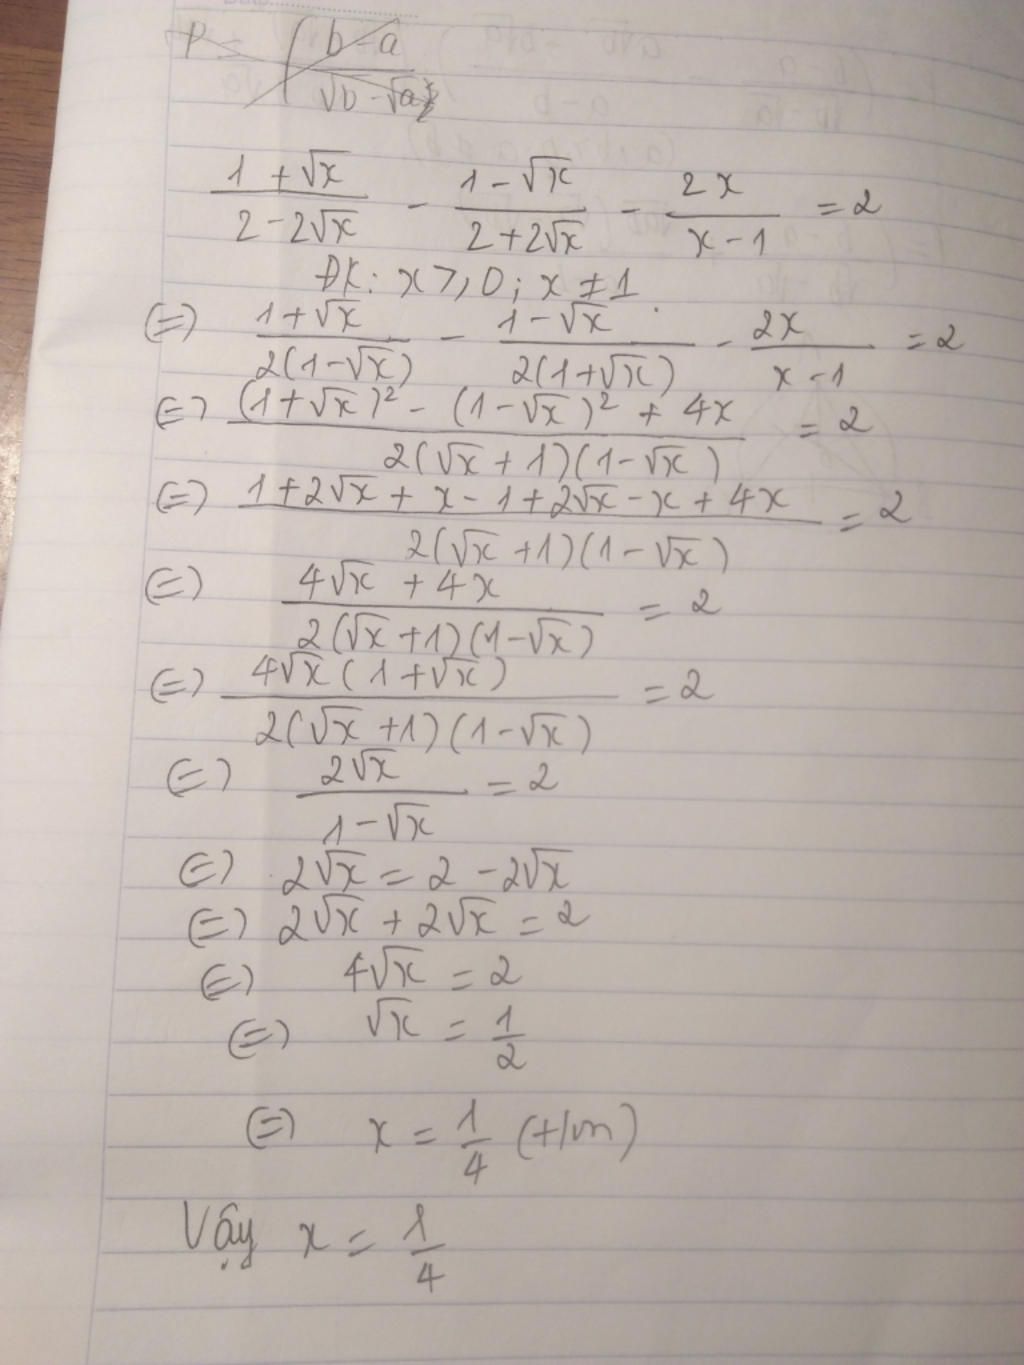 P = (b-a)/(√b - √a)
(1 + √x)/(2 - 2√x) - (1 - √x)/(2 + 2√x) - 2x/(x - 1) = 2
ĐK: x ≥ 0; x ≠ 1
(=) (1 + √x)/(2(1 - √x)) - (1 - √x)/(2(1 + √x)) - 2x/(x - 1) = 2
(=) ((1 + √x)² - (1 - √x)² + 4x)/(2(√x + 1)(1 - √x)) = 2
(=) (1 + 2√x + x - 1 + 2√x - x + 4x)/(2(√x + 1)(1 - √x)) = 2
(=) (4√x + 4x)/(2(√x + 1)(1 - √x)) = 2
(=) (4√x(1 + √x))/(2(√x + 1)(1 - √x)) = 2
(=) 2√x/(1 - √x) = 2
(=) 2√x = 2 - 2√x
(=) 2√x + 2√x = 2
(=) 4√x = 2
(=) √x = 1/2
(=) x = 1/4 (t/m)
Vậy x = 1/4